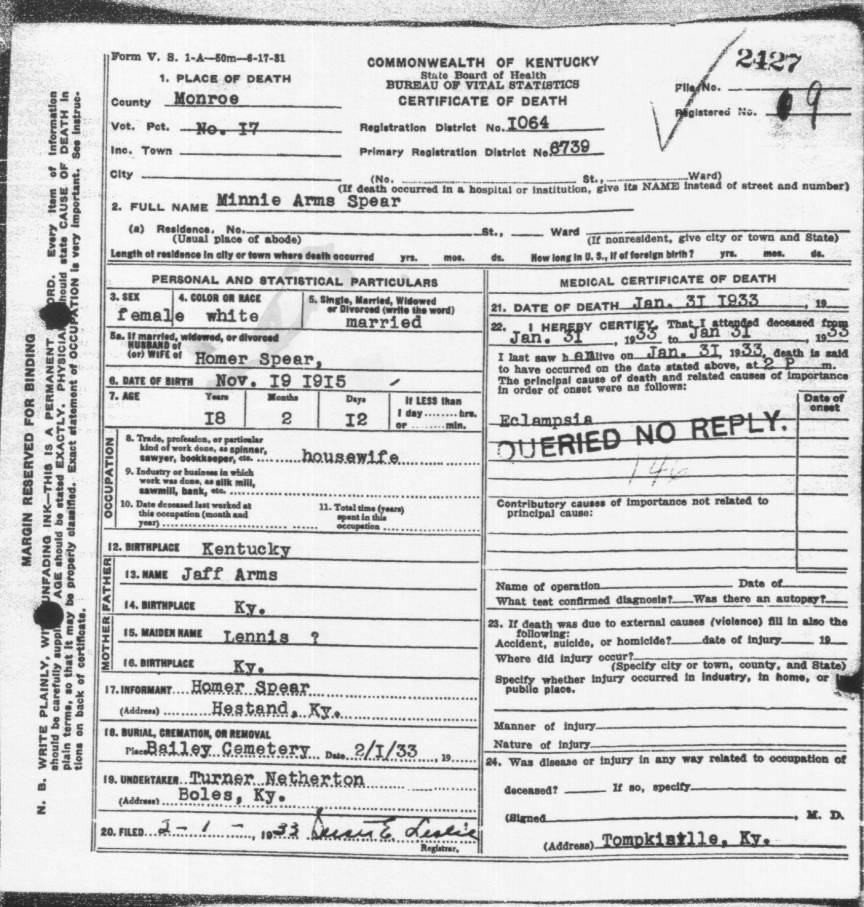 Form V. S. 1-A—50m—6-17-31
1. PLACE OF DEATH
County Monroe
Vot. Pct. No. I7
Inc. Town
City
COMMONWEALTH OF KENTUCKY
State Board of Health
BUREAU OF VITAL STATISTICS
CERTIFICATE OF DEATH
Registration District No. I064
Primary Registration District No. 6739
2427
File No.
Registered No. 9
(No. St., Ward)
(If death occurred in a hospital or institution, give its NAME instead of street and number)
2. FULL NAME Minnie Arms Spear
(a) Residence, No. St., Ward
(Usual place of abode) (If nonresident, give city or town and State)
Length of residence in city or town where death occurred yrs. mos. ds. How long in U. S., if of foreign birth? yrs. mos. ds.
PERSONAL AND STATISTICAL PARTICULARS
3. SEX
female
4. COLOR OR RACE
white
5. Single, Married, Widowed
or Divorced (write the word)
married
5a. If married, widowed, or divorced
HUSBAND of
(or) WIFE of Homer Spear,
6. DATE OF BIRTH Nov. I9 I9I5
7. AGE Years Months Days If LESS than
1 day ........ hrs.
or ........ min.
I8 2 I2
OCCUPATION
8. Trade, profession, or particular
kind of work done, as spinner,
sawyer, bookkeeper, etc. housewife
9. Industry or business in which
work was done, as silk mill,
sawmill, bank, etc.
10. Date deceased last worked at
this occupation (month and
year)
11. Total time (years)
spent in this
occupation
12. BIRTHPLACE Kentucky
FATHER
13. NAME Jaff Arms
14. BIRTHPLACE Ky.
MOTHER
15. MAIDEN NAME Lennis ?
16. BIRTHPLACE Ky.
17. INFORMANT Homer Spear
(Address) Hestand, Ky.
18. BURIAL, CREMATION, OR REMOVAL
Place Bailey Cemetery Date 2/I/33, 19
19. UNDERTAKER Turner Netherton
(Address) Boles, Ky.
20. FILED 2-1-, 1933 E. Leslie
Registrar.
MEDICAL CERTIFICATE OF DEATH
21. DATE OF DEATH Jan. 3I I933, 19
22. I HEREBY CERTIFY, That I attended deceased from
Jan. 3I, 1933 to Jan 3I, 1933
I last saw h alive on Jan. 3I, 1933, death is said
to have occurred on the date stated above, at 2 P m.
The principal cause of death and related causes of importance
in order of onset were as follows:
Date of
onset
Eclampsia
QUERIED NO REPLY.
146
Contributory causes of importance not related to
principal cause:
Name of operation Date of
What test confirmed diagnosis? Was there an autopsy?
23. If death was due to external causes (violence) fill in also the
following:
Accident, suicide, or homicide? date of injury 19
Where did injury occur?
(Specify city or town, county, and State)
Specify whether injury occurred in industry, in home, or
public place.
Manner of injury
Nature of injury
24. Was disease or injury in any way related to occupation of
deceased? If so, specify
(Signed , M. D.
(Address) Tompkistlle, Ky.
MARGIN RESERVED FOR BINDING
N. B. WRITE PLAINLY, UNFADING INK—THIS IS A PERMANENT Every item of information
should be carefully AGE should be stated EXACTLY. should state CAUSE OF DEATH in
plain terms, so that it may be properly classified. Exact statement of OCCUPATION is very important. See instruc-
tions on back of certificate.